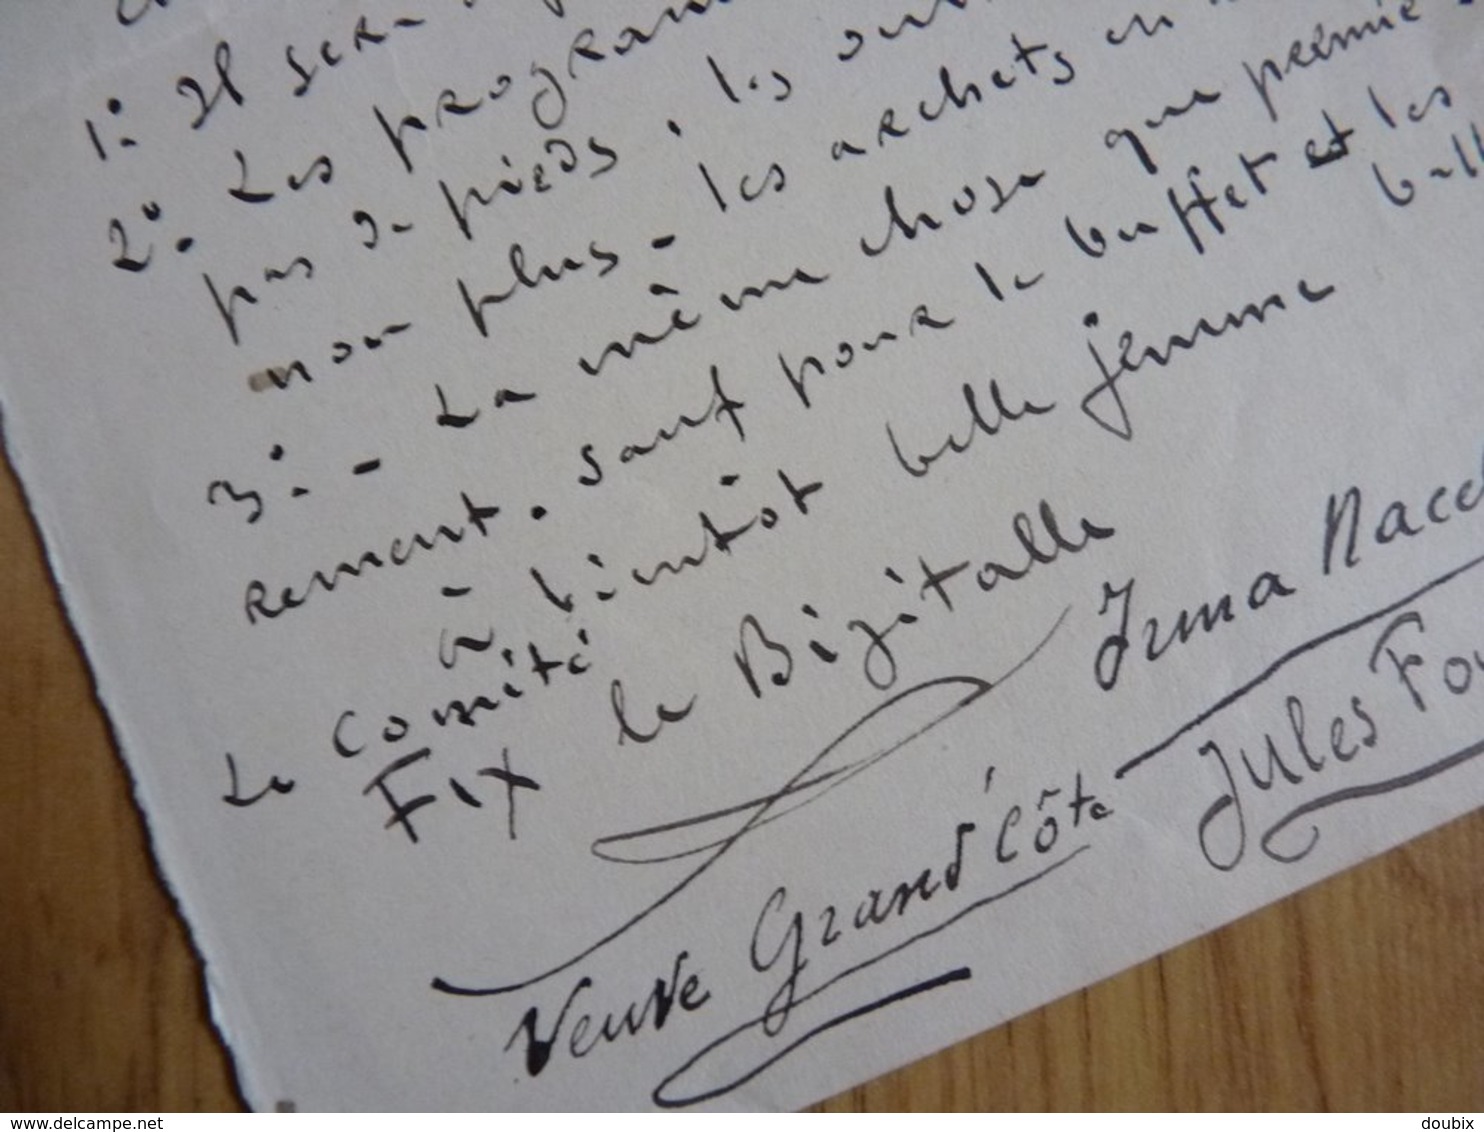 1º- Il sera
2º- Les program
pas de pieds. les
non plus - les archets en
3º.- La même chose que premiè
rement. sauf pour le buffet et les
à bientôt belle femme
Le Comité
FIX le Bizitalle
Irma
Veuve Grand'Côte
Jules
delcampe.net
doubix